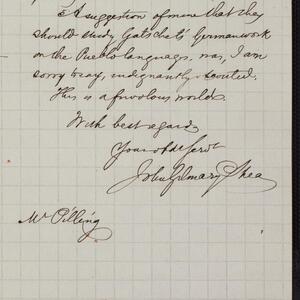 A suggestion of mine that they
should study Gatschet's German work
on the Pueblo language, was, I am
sorry to say, indignantly scouted.
This is a frivolous world.
With best regards
Your obdt servt
John Gilmary Shea
Mr Pilling